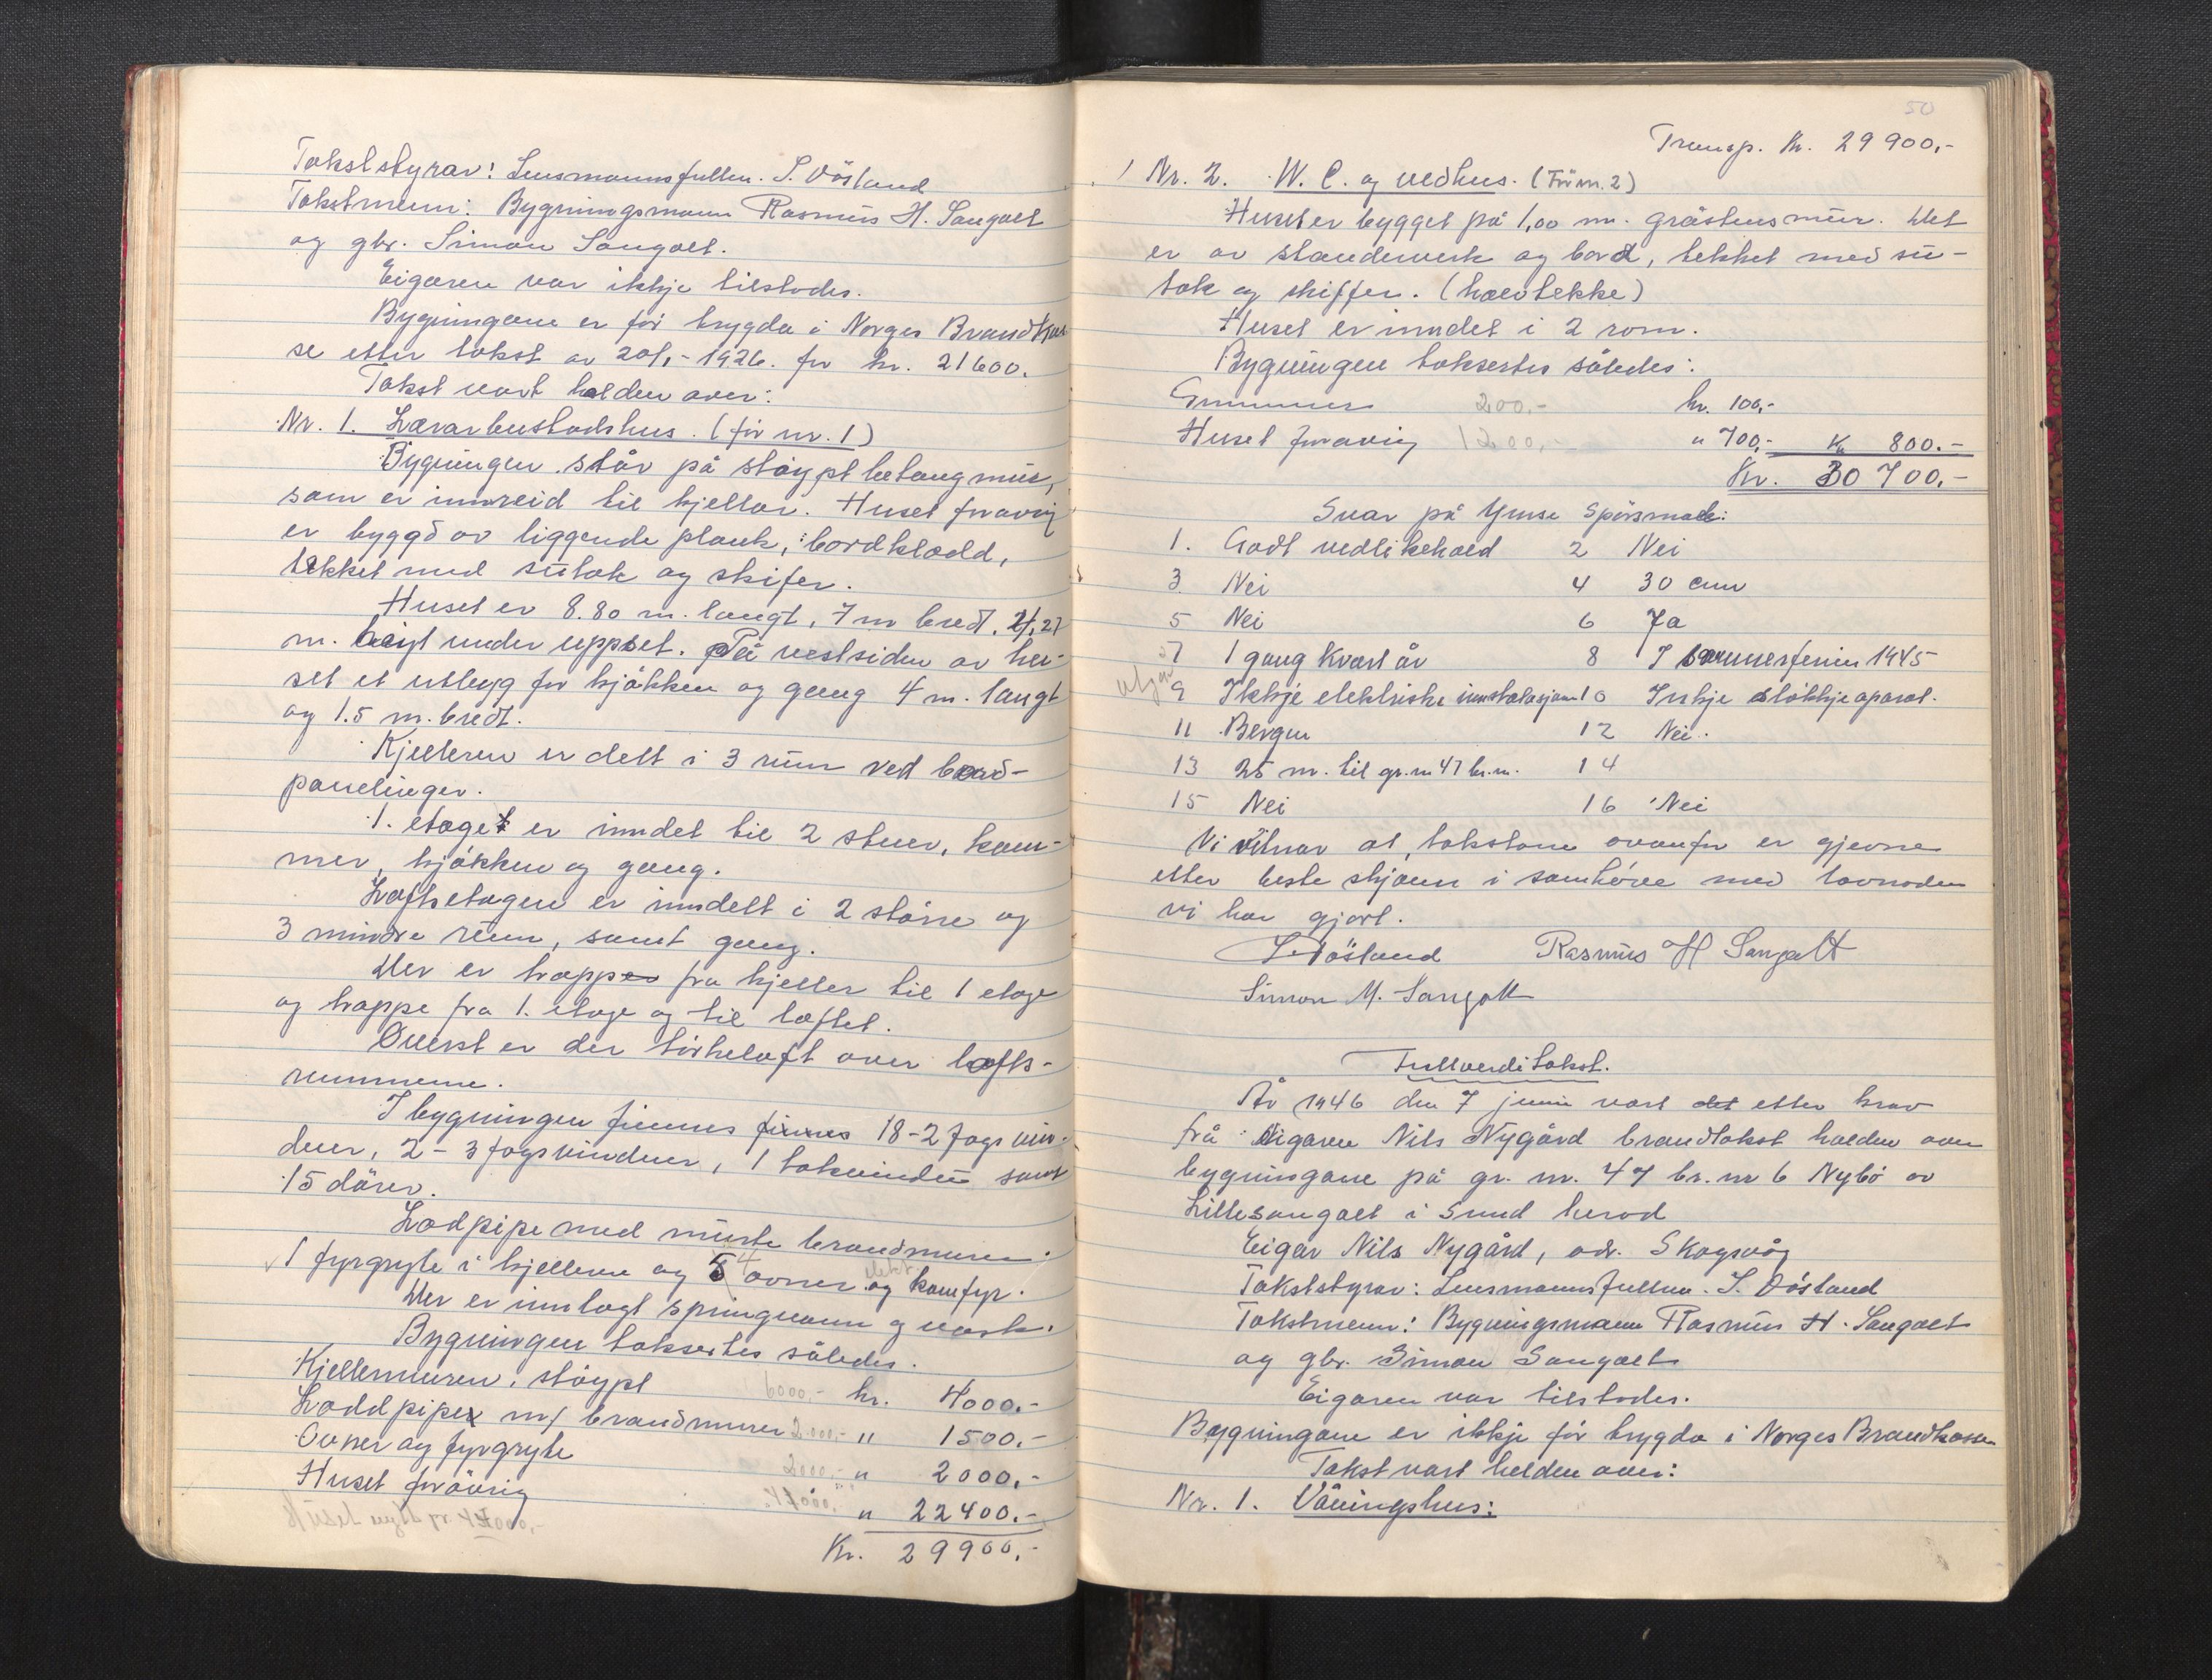 Takststyrar: Lensmannsfullm. S. Vösland
Takstmenn: Bygningsmann Rasmus H. Sangolt
og gbr. Simon Sangolt.
Eigaren var ikkje tilstodes.
Bygningane er før trygda i Norges Brandkas
se etter takst av 20/1 - 1926. for kr. 21600.
Takst vart halden over:
Nr. 1. Lærarbustadshus. (før nr. 1)
Bygningen står på støypt betongmur,
som er innreid til kjellar. Huset forøvrig
er byggd av liggende plank, bordklædd,
tekket med sutak og skifer.
Huset er 8.80 m. langt, 7 m bredt,
m. høigt under uppset. På vestsiden av hu-
set et utbygg for kjøkken og gang 4 m. langt
og 1.5 m. bredt.
Kjelleren er delt i 3 rum ved bord-
panelinger.
1. etaget er inndel til 2 stuer, kam-
mer, kjøkken og gang.
Loftsetagen er inndelt i 2 større og
3 mindre rum, samt gang.
Der er trapper fra kjeller til 1 etage
og trappe fra 1. etage og til loftet.
Øverst er der tørkeloft over lofts-
rummene.
I bygningen finnes finnes 18 - 2 fags vin-
duer, 2 - 3 fagsvinduer, 1 takvindu samt
15 dører.
Lodpipe med murte brandmurer.
1 fyrgryte i kjelleren og 5 4 ovner elekt. og komfyr.
Der er innlagt springvann og vask.
Bygningen taksertes således.
Kjellermuren, støypt 6000.- kr. 4000.-
Loddpiper m/ brandmurer 2000.- " 1500.-
Ovner og fyrgryte 2000.- " 2000.-
Huset forøvrig " 22400.-
Kr. 29900.-
50
Transp. Kr. 29 900,-
Nr. 2. W. C. og vedhus. (Før nr. 2)
Huset er bygget på 1,00 m. gråstensmur. Det
er av standerverk og bord, tekket med su-
tak og skiffer. (halvtekke)
Huset er inndet i 2 rom.
Bygningen taksertes således:
Grunnmur 200,- kr. 100,-
Huset forøvrig 1200,- " 700,- Kr 800.-
Kr. 30 700,-
Svar på ymse spørsmål:
1. Godt vedlikehold 2 Nei
3. Nei 4 30 cm
5 Nei 6 Ja
7 1 gang kvart år 8 I sommerferien 1945
9 Ikkje elektriske innstalasjon 10 Inkje sløkkjeaparat.
11 Bergen 12 Nei.
13 25 m. til gr. nr 47 br. nr. 14
15 Nei 16 Nei
Vi vitnar at, takstane ovanfor er gjevne
etter beste skjønn i samhøve med lovnaden
vi har gjort.
S. Vösland Rasmus H Sangolt
Simon M. Sangolt
Fullverditakst.
År 1946 den 7 juni vart det etter krav
frå eigaren Nils Nygård brandtakst halden over
bygningane på gr. nr. 47 br. nr 6 Nybø av
Lillesangolt i Sund herad
Eigar Nils Nygård, adr. Skogsvåg
Takststyrar: Lensmannsfullm. S. Vösland
Takstmenn: Bygningsmann Rasmus H. Sangolt
og gbr. Simon Sangolt
Eigaren var tilstodes.
Bygningane er ikkje før trygda i Norges Brandkasse
Takst vart halden over:
Nr. 1. Våningshus: